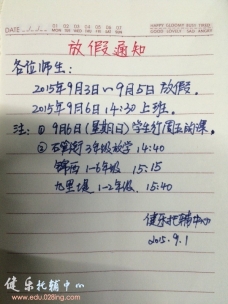 DATE
01 02 03 04 05 06 07
MO TU WE TH FR SA SU
放假通知
各位师生：
2015年9月3日～9月5日放假.
2015年9月6日 14:30上班.
注：① 9月6日(星期日)学生行周五的课.
② 石笋街3年级放学 14:40
锦西 1-6年级 15:15
九里堤 1-2年级. 15:40
健乐托辅中心
2015.9.1
健乐托辅中心
www.edu.028ing.com